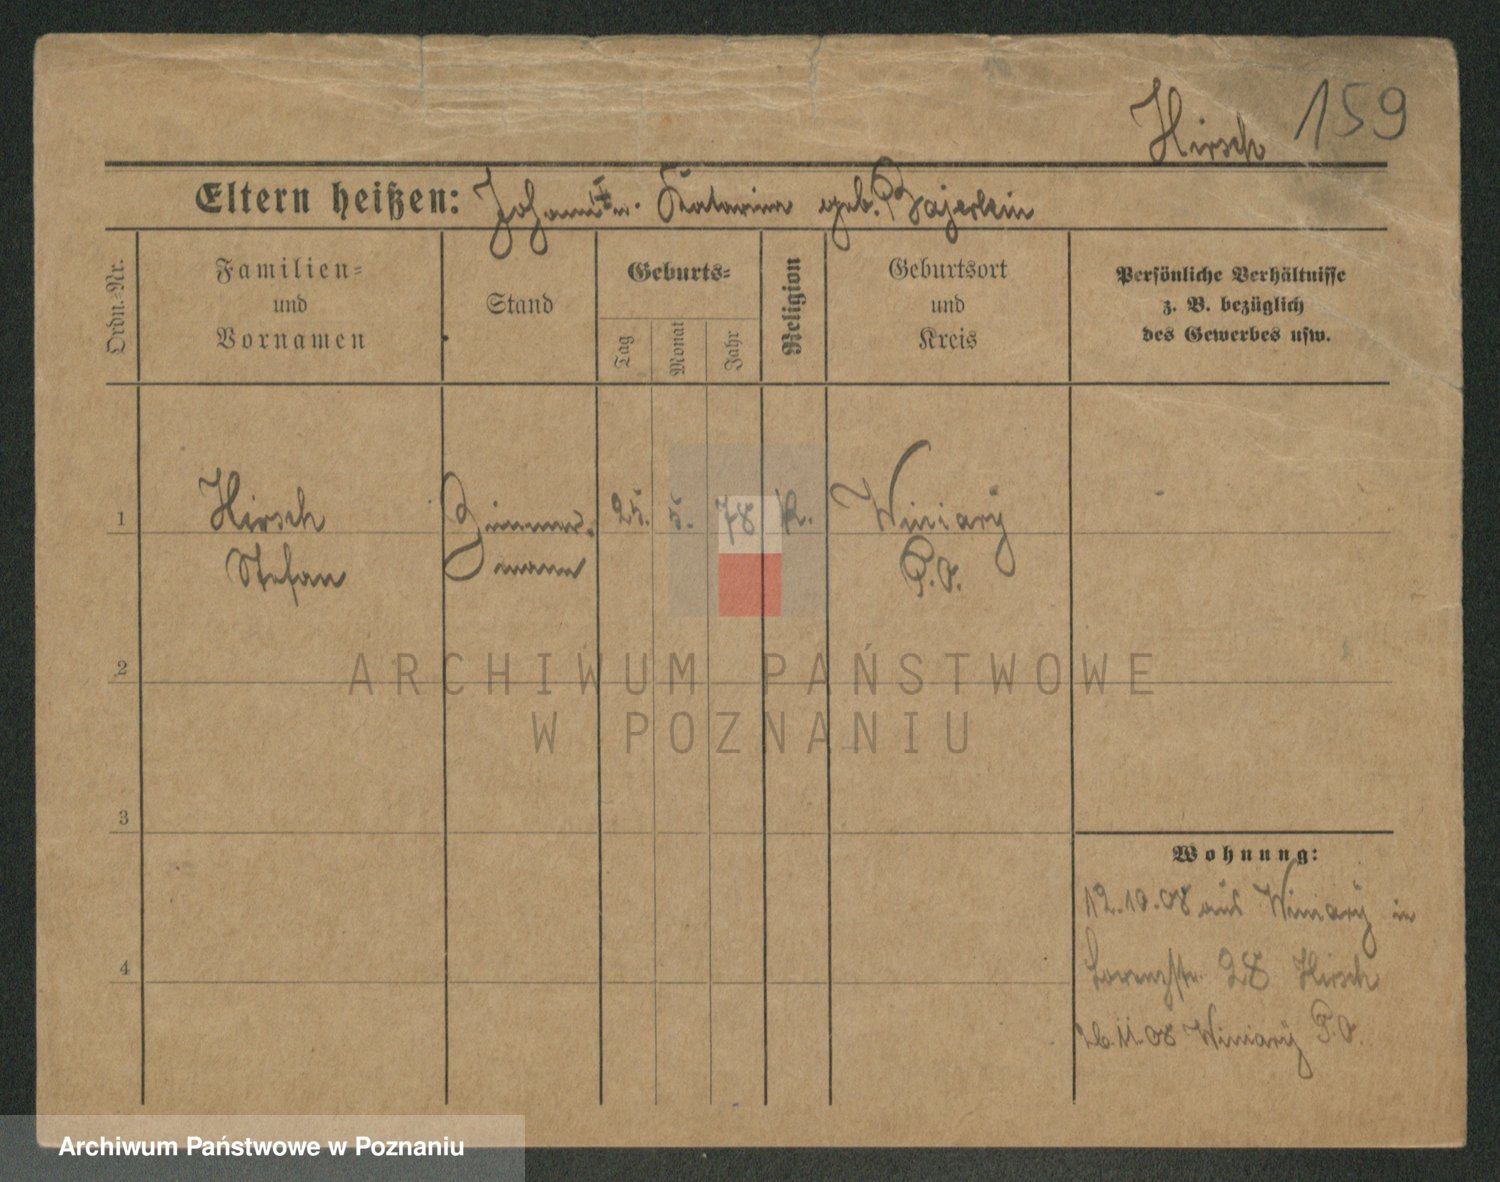 Hirsch 159
Eltern heißen: Johann u. Katarina geb. Bajerlein
Ordn.-Nr.
Familien-
und
Vornamen
Stand
Geburts-
Tag
Monat
Jahr
Religion
Geburtsort
und
Kreis
Persönliche Verhältnisse
z. B. bezüglich
des Gewerbes usw.
1 Hirsch Zimmer- 25. 5. 78 k. Winiary
Stefan mann P.O.
2
ARCHIWUM PAŃSTWOWE
W POZNANIU
3
Wohnung:
12.10.08 aus Winiary in
4
Lorenzstr. 28 Hirsch
26.11.08 Winiary P.O.
Archiwum Państwowe w Poznaniu